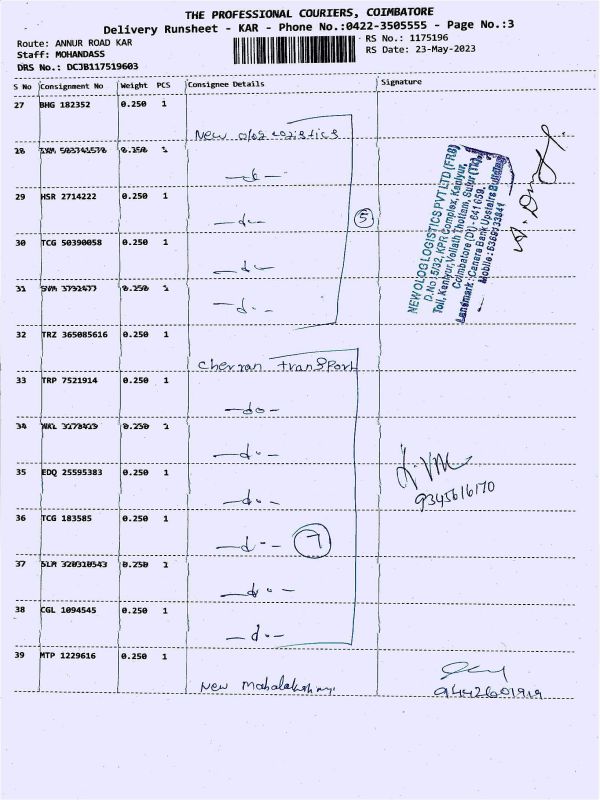 THE PROFESSIONAL COURIERS, COIMBATORE
Delivery Runsheet - KAR - Phone No.:0422-3505555 - Page No.:3
Route: ANNUR ROAD KAR
RS No.: 1175196
Staff: MOHANDASS
RS Date: 23-May-2023
DRS No.: DCJB117519603
S No Consignment No Weight PCS Consignee Details Signature
27 BHG 182352 0.250 1
New olog Logistics
28 503741578 0.250 1
29 HSR 2714222 0.250 1
-do-
5
30 TCG 50390058 0.250 1
-do-
31 SVM 3792477 0.250 1
-do-
NEW OLOG LOGISTICS PVT LTD (FRB)
D.No:5/32, KPR Complex, Kaniyur,
Toll, Kaniyur, Vellath Thottam, Sulur (TK),
Coimbatore (DT) - 641 659.
Landmark : Canara Bank Upstairs Building
Mobile : 6369133841
32 TRZ 365085616 0.250 1
Cherran transport
33 TRP 7521914 0.250 1
-do-
34 0.250 1
-do-
35 EDQ 25595383 0.250 1
-do-
9345616170
36 TCG 183585 0.250 1
-do-
7
37 SLM 320310543 0.250 1
-do-
38 CGL 1094545 0.250 1
-do-
39 MTP 1229616 0.250 1
New Mahalakshmi
9442601919